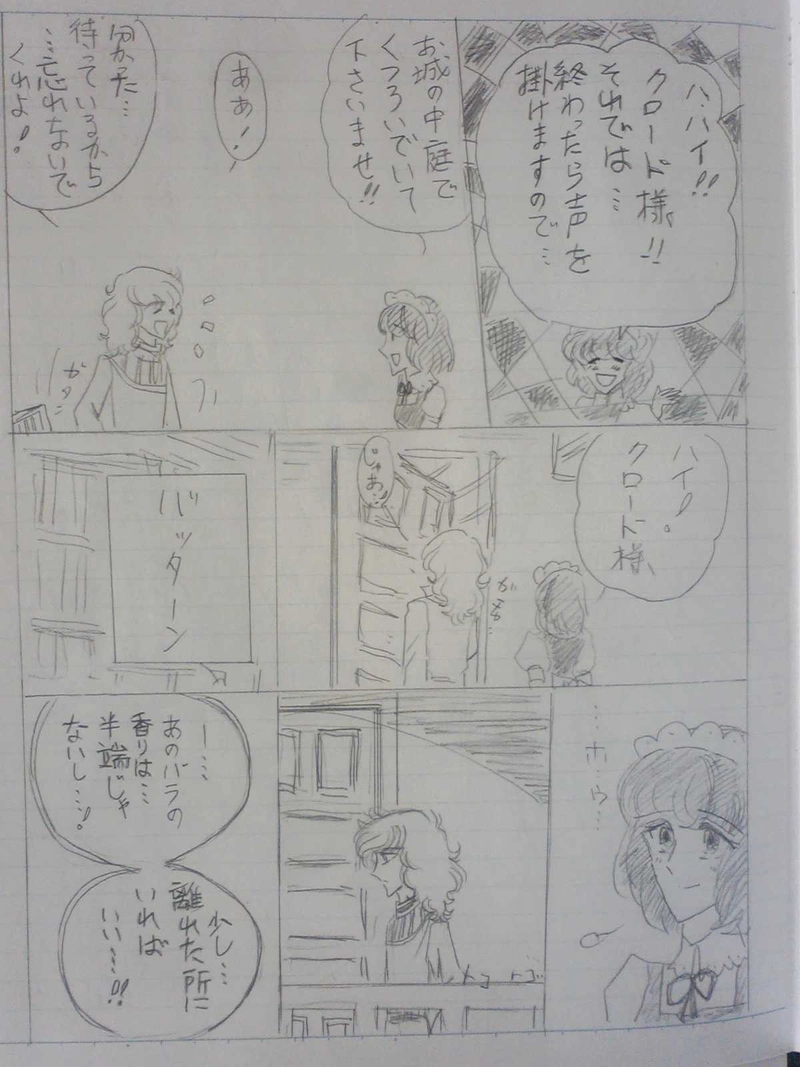 ハ、ハイ!!
クロード様!!
それでは…
終わったら声を
掛けますので…
お城の中庭で
くつろいでいて
下さいませ!!
ああ!
分かった…
待っているから
…忘れないで
くれよ!
ガタ…
ハイ!
クロード様、
じゃあ…
バッターン
…ホゥ…
トコ トコ
ー…
あのバラの
香りは…
半端じゃ
ないし…!
少し…
離れた所に
いれば
いい…!!